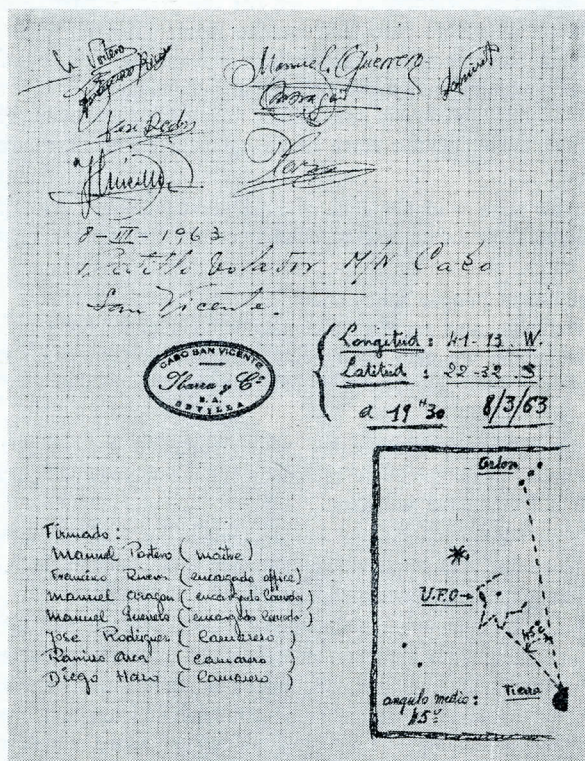 M. Portero
Manuel Guerrero
Jose Rodr
8-III-1963
Platillo Volador M/N Cabo
San Vicente.
CABO SAN VICENTE
Ybarra y Cª
S.A.
SEVILLA
Longitud: 41-13.W.
Latitud: 22-32.S
a 19 H 30 8/3/63
Orion
U.F.O→
45º
Tierra
angulo medio:
45º
Firmado:
Manuel Portero (maitre)
Francisco Rivera (encargado office)
Manuel Aragon (encargado lavado)
Manuel Guerrero (encargado lavado)
Jose Rodriguez (Camarero)
Ramiro Arca (camarero)
Diego Haro (Camarero)